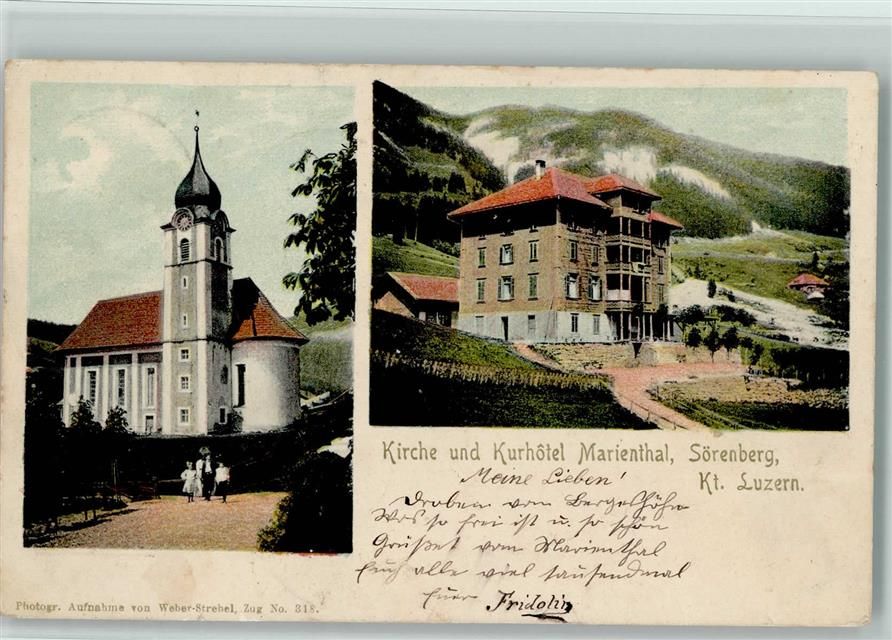 Kirche und Kurhôtel Marienthal, Sörenberg,
Kt. Luzern.
Meine Lieben!
Droben von Bergeshöhn
Wo's so frei ist u. so schön
Grüßet vom Marienthal
Euch alle viel tausendmal
Euer Fridolin
Photogr. Aufnahme von Weber-Strebel, Zug No. 318.